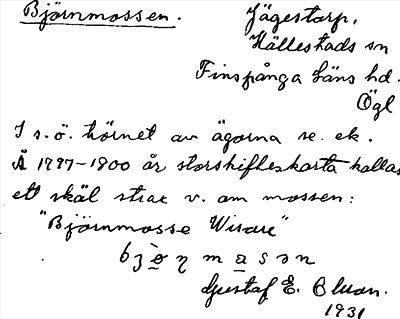 Björnmossen.
Jägestorp,
Hällestads sn
Finspånga läns hd.
Ögl
I s.ö. hörnet av ägorna se. ek.
Å 1797-1800 års storskifteskarta kallas
ett skäl strax v. om mossen:
"Björnmosse Wisare"
Gustaf E. Bluon.
1931